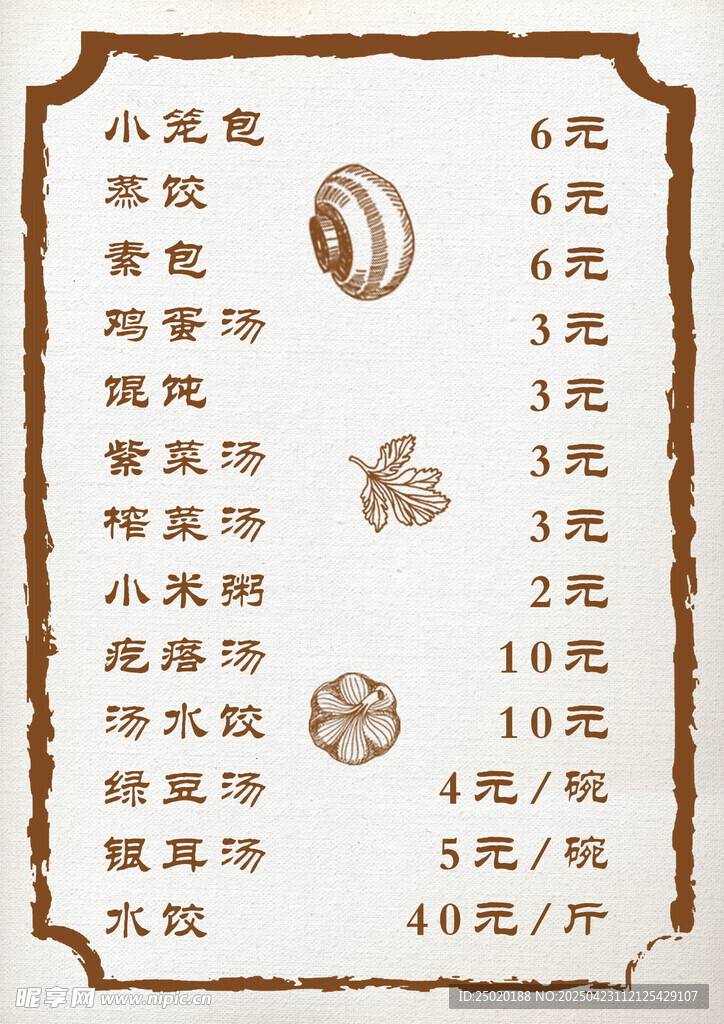 小笼包 6元
蒸饺 6元
素包 6元
鸡蛋汤 3元
馄饨 3元
紫菜汤 3元
榨菜汤 3元
小米粥 2元
疙瘩汤 10元
汤水饺 10元
绿豆汤 4元/碗
银耳汤 5元/碗
水饺 40元/斤
昵享网 www.nipic.cn
ID:25020188 NO:20250423112125429107